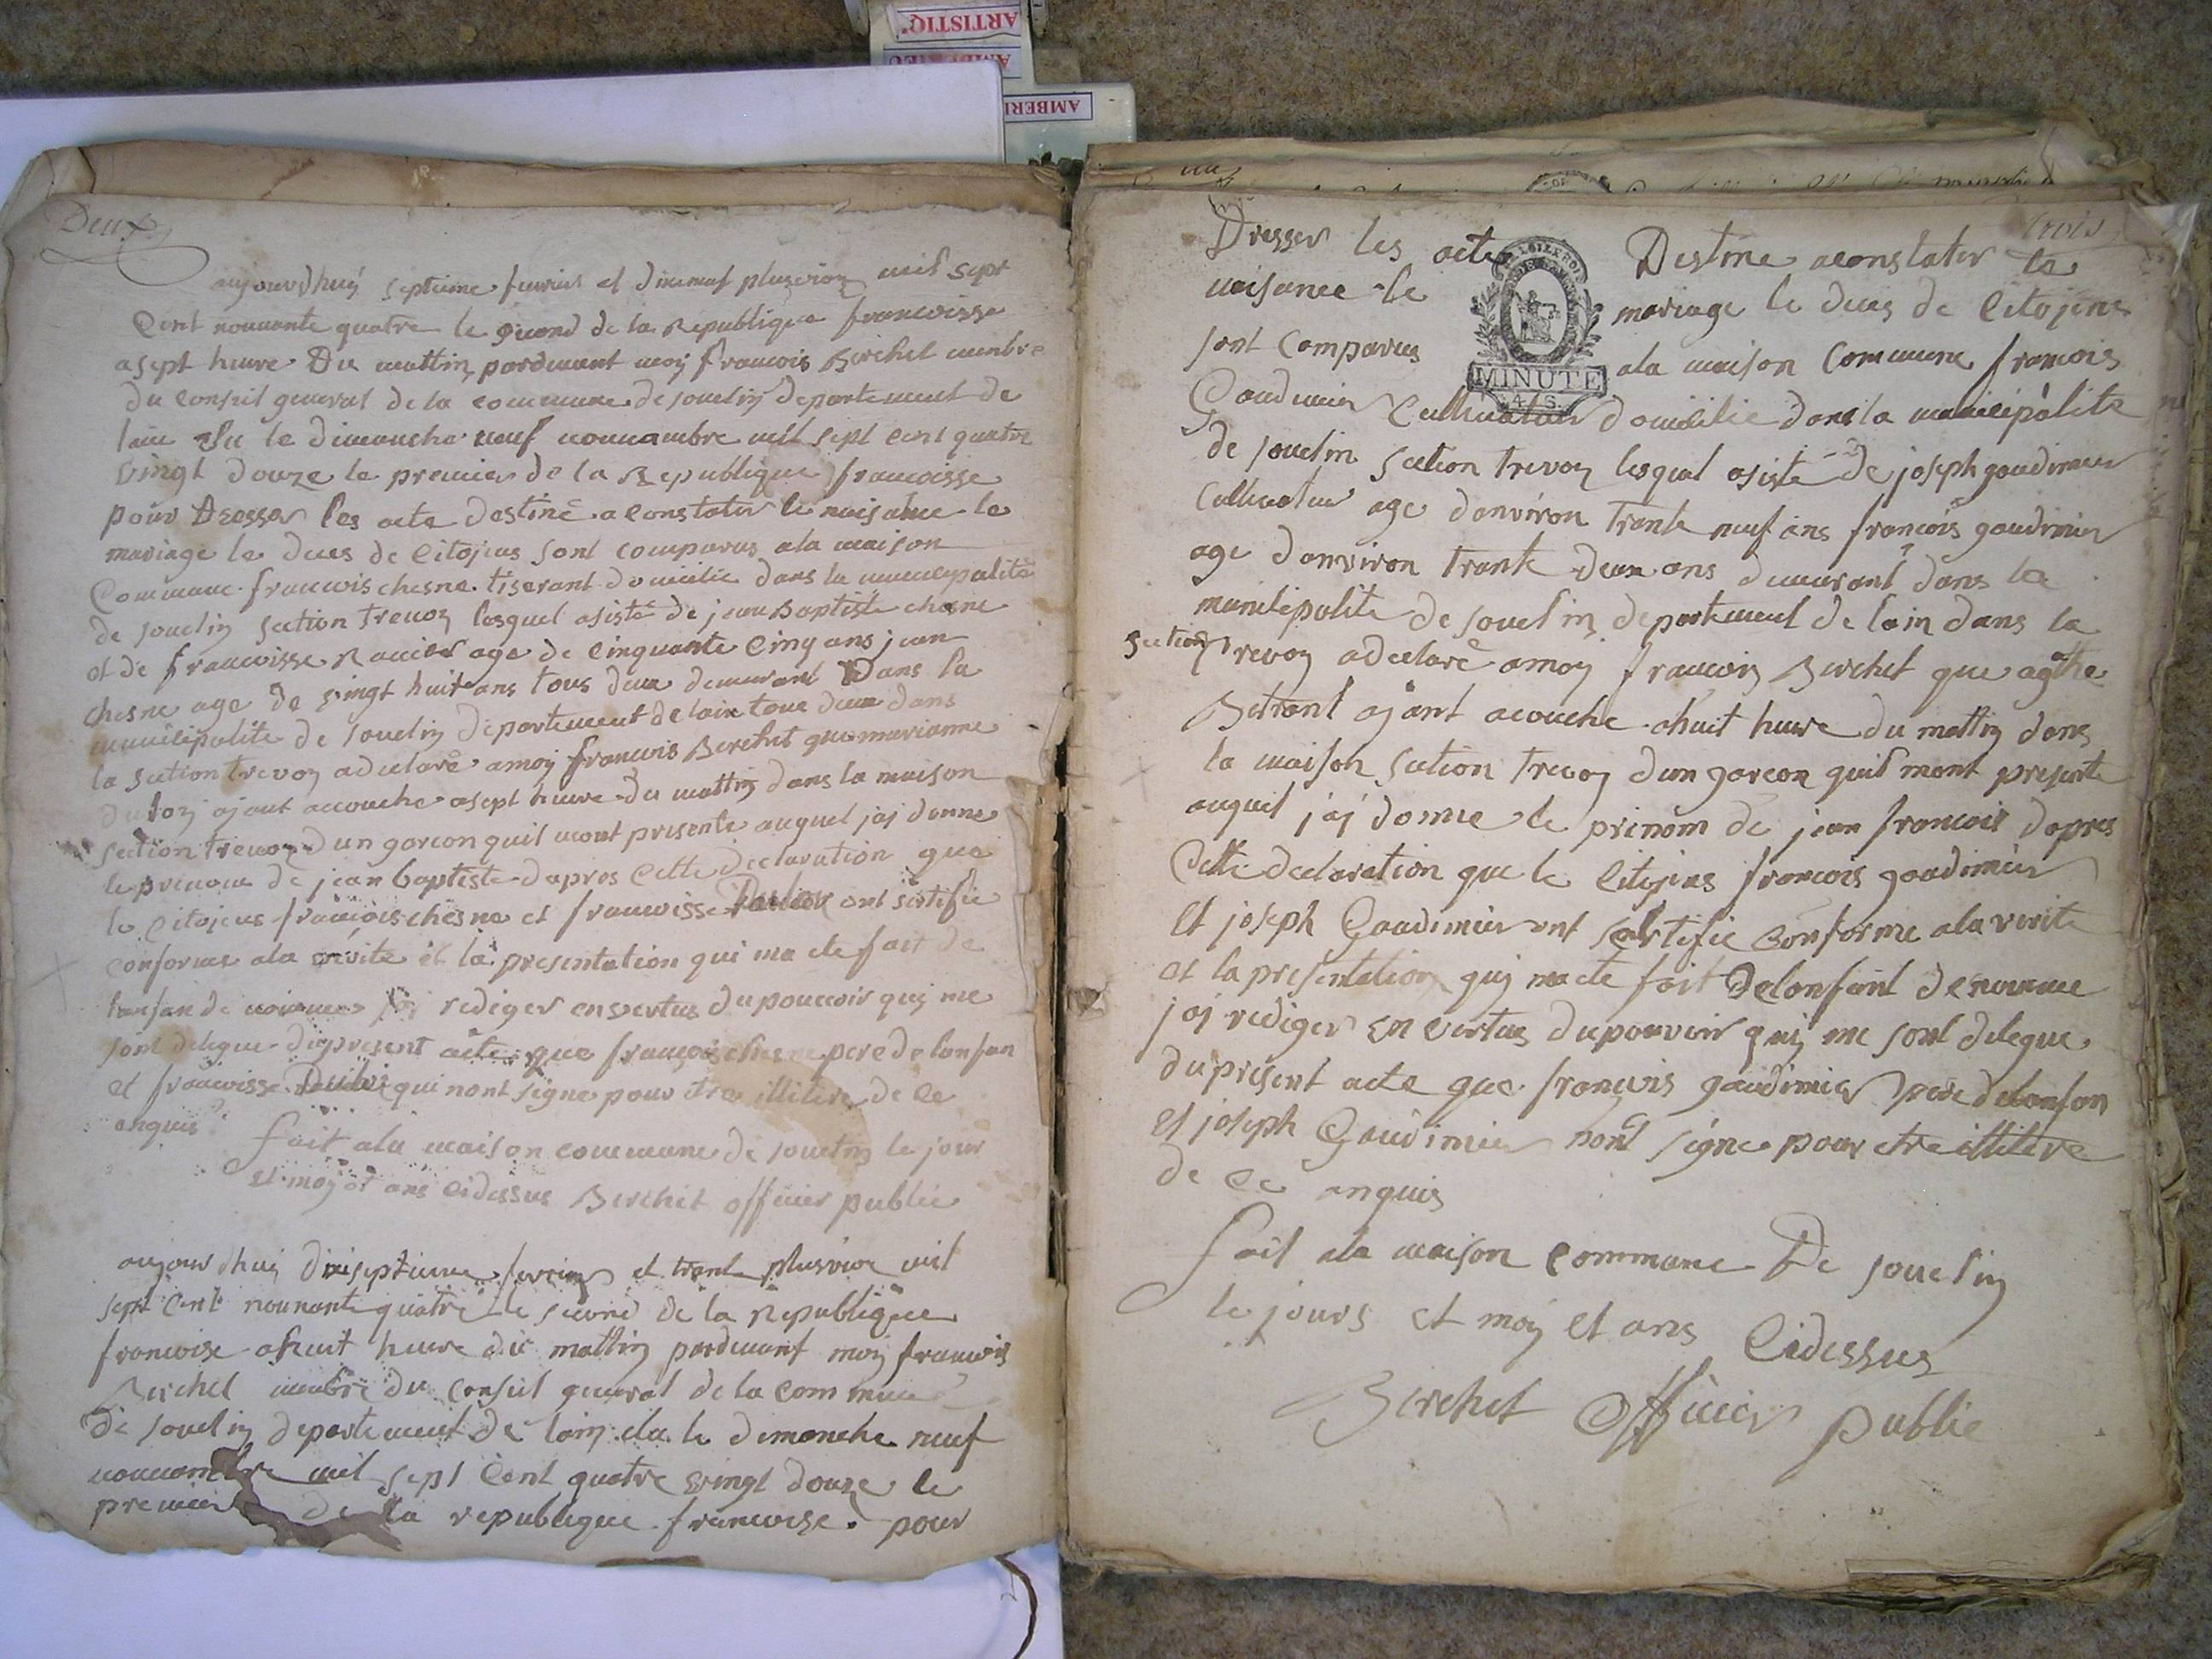 ARTISTIQ'
AMBERIEU
AMBERI
Deux
aujourdhuy septieme fevrier et dixneuf pluviox mil sept
Cent nonnante quatre le second de la Republique francoisse
a sept heure Du mattin pardevant moy francois Berchet menbre
du Conseil general de la commune de souclin departement de
lain elu le dimanche neuf novambre mil sept cent quatre
vingt douze le premier de la Republique francoisse
pour Dresser les acte destiné a constater le naisance le
mariage le deces de Citojens sont comparus ala maison
Commune francois chesne tiserant domicilie dans la municipalite
de souclin section trevoy lesquel asisté de jean Baptiste chesne
et de francoisse age de cinquante Cinq ans jean
chesne age de vingt huit ans tous deux demeurant Dans la
municipalite de souclin departement de lain tous deux dans
la section trevoy adeclaré amoy francois Berchet que marianne
ajant accouche asept heure du mattin dans la maison
section trevoy dun garcon quil mont presente auquel jaj donne
le prenom de jean baptiste dapres Cette declaration que
le Citojens francois chesne et francoisse ont sertifie
conforme ala verite et la presentation qui ma ete fait de
lanfan de nomme jaj rediger en vertus du pouvoir quj me
sont delegue du present acte que francois chesne pere de lanfan
et francoisse qui nont signe pour itre illitere de ce
anquis
fait ala maison commune de souclin le jour
et moy et ans cidessus Berchet officier public
aujourdhuy dixseptieme fevrier et trante pluviox mil
sept Cent nonnante quatre le second de la Republique
francoise ahuit heure du mattin pardevant moy francois
Berchet menbre du Conseil general de la commune
de souclin departement de lain elu le dimanche neuf
novambre mil sept Cent quatre vingt douze le
premier de la republique francoise pour
trois
Dresser les acte Destine aconstater la
naisance le mariage le deces de Citojens
sont Comparus ala maison Commune francois
MINUTE
4. S.
Gaudimier Cultivateur domicilie dans la municipalite
de souclin section trevoy lesquel asisté de joseph gaudimier
Cultivateur age danviron trante neuf ans francois gaudimier
age danviron trante deux ans demeurant dans la
municipalite de souclin departement de lain dans la
section trevoy adeclaré amoy francois Berchet que agthe
Betrant ajant acouche ahuit heure du mattin dans
la maison section trevoy dun garcon quil mont presente
auquel jaj donne le prinom de jean francois dapres
Cette declaration que le Citojens francois gaudimier
et joseph Gaudimier ont certifie Conforme ala verite
et la presentation quj macte fait De lanfant denomme
jaj rediger en vertus du pouvoir quj me sont delegue
du present acte que francois gaudimier pere de lanfan
et joseph Gaudimier nont signe pour etre illitere
de ce anquis
fait ala maison Commune De souclin
le jours et moy et ans Cidessus
Berchet Officier public